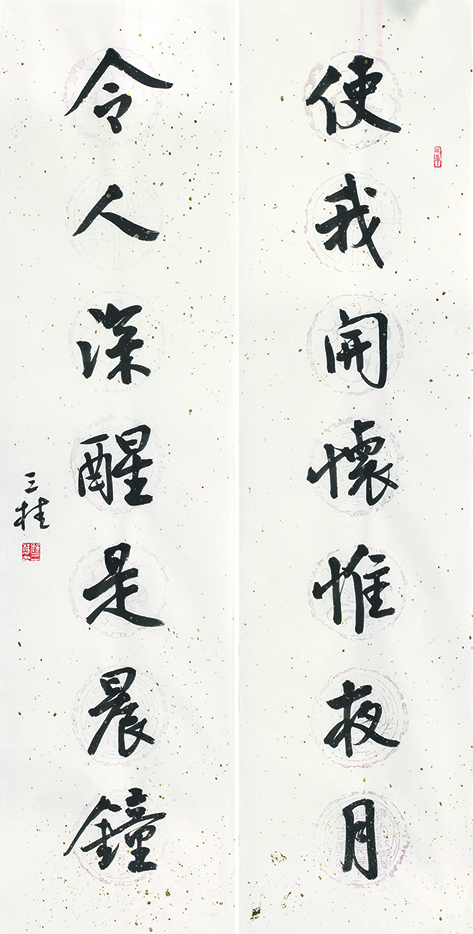 使我開懷惟夜月
令人深醒是晨鐘
三桂